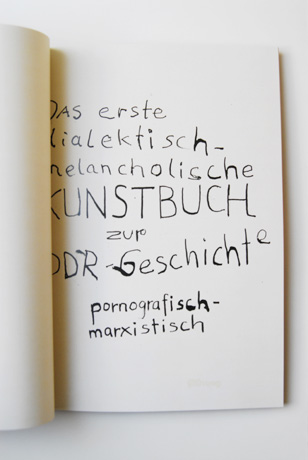 DAS erste
dialektisch-
melancholische
KUNSTBUCH
zur
DDR-Geschichte
pornografisch-
marxistisch